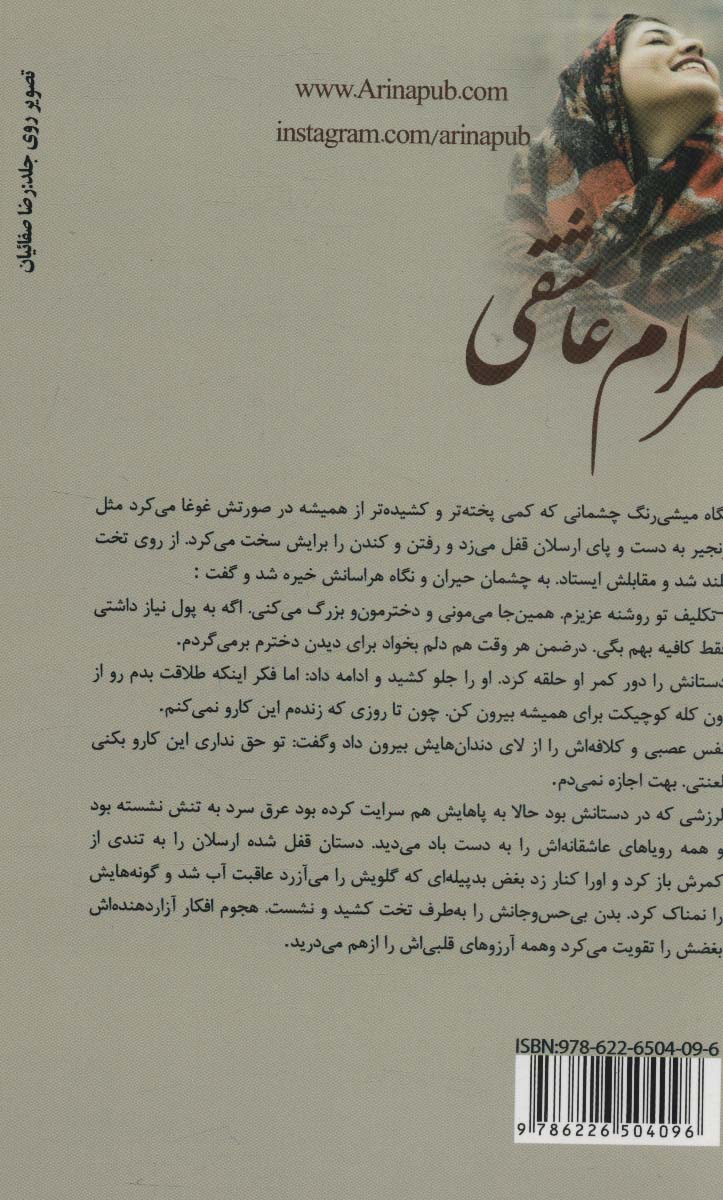 www.Arinapub.com
instagram.com/arinapub
تصویر روی جلد:رضا صفائیان
مرام عاشقی
گاه میشی‌رنگ چشمانی که کمی پخته‌تر و کشیده‌تر از همیشه در صورتش غوغا می‌کرد مثل
نجیر به دست و پای ارسلان قفل می‌زد و رفتن و کندن را برایش سخت می‌کرد. از روی تخت
لند شد و مقابلش ایستاد. به چشمان حیران و نگاه هراسانش خیره شد و گفت :
-تکلیف تو روشنه عزیزم. همین‌جا می‌مونی و دخترمون‌و بزرگ می‌کنی. اگه به پول نیاز داشتی
فقط کافیه بهم بگی. درضمن هر وقت هم دلم بخواد برای دیدن دخترم برمی‌گردم.
دستانش را دور کمر او حلقه کرد. او را جلو کشید و ادامه داد: اما فکر اینکه طلاقت بدم رو از
ون کله کوچیکت برای همیشه بیرون کن. چون تا روزی که زنده‌م این کارو نمی‌کنم.
نفس عصبی و کلافه‌اش را از لای دندان‌هایش بیرون داد وگفت: تو حق نداری این کارو بکنی
لعنتی. بهت اجازه نمی‌دم.
لرزشی که در دستانش بود حالا به پاهایش هم سرایت کرده بود عرق سرد به تنش نشسته بود
و همه رویاهای عاشقانه‌اش را به دست باد می‌دید. دستان قفل شده ارسلان را به تندی از
کمرش باز کرد و اورا کنار زد بغض بدپیله‌ای که گلویش را می‌آزرد عاقبت آب شد و گونه‌هایش
را نمناک کرد. بدن بی‌حس‌وجانش را به‌طرف تخت کشید و نشست. هجوم افکار آزاردهنده‌اش
بغضش را تقویت می‌کرد وهمه آرزوهای قلبی‌اش را ازهم می‌درید.
ISBN:978-622-6504-09-6
9 786226 504096